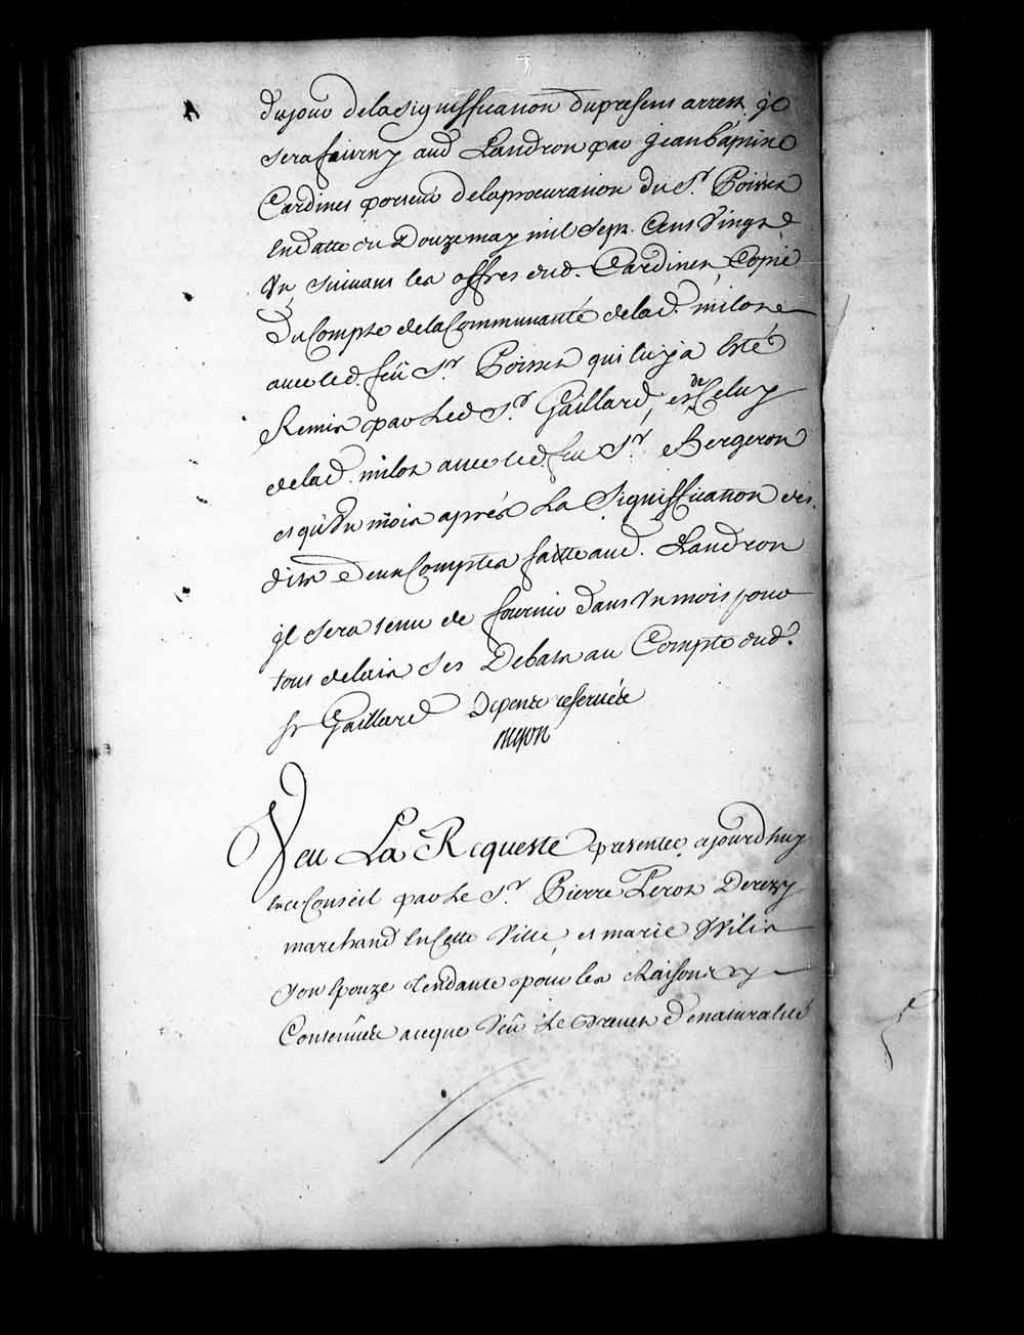 du jour de la Signiffication du present arrest il
sera fourny aud Landron par Jean baptiste
Cardinet porteur de la procuration du Sr. Poisset
En datte du Douze may mil Sept. Cent Vingt
Un Suivant les offres dud. Cardinet, Copie
Du Compte de la Communauté de lad. milot
avec led. feu Sr Poisset qui luy a Esté
Remis par Led Sr. Gaillard, et de Celuy
de lad. milot avec led. feu Sr. Bergeron
et qu'Un mois aprés La Signiffication des
dits Deux Comptes faitte aud. Landron
il sera tenu de fournir dans Un mois pour
tous delais Ses Debats au Compte dud.
Sr Gaillard Depens reservés
Begon
Veu La Requeste presentée ajourd'huy
En ce Conseil par Le Sr. Pierre Perot Derezy
marchand En Cette Ville, et marie Willis
son Epouze tendante pour les Raisons y
Contenües a ce que Veu le Brevet de naturalité